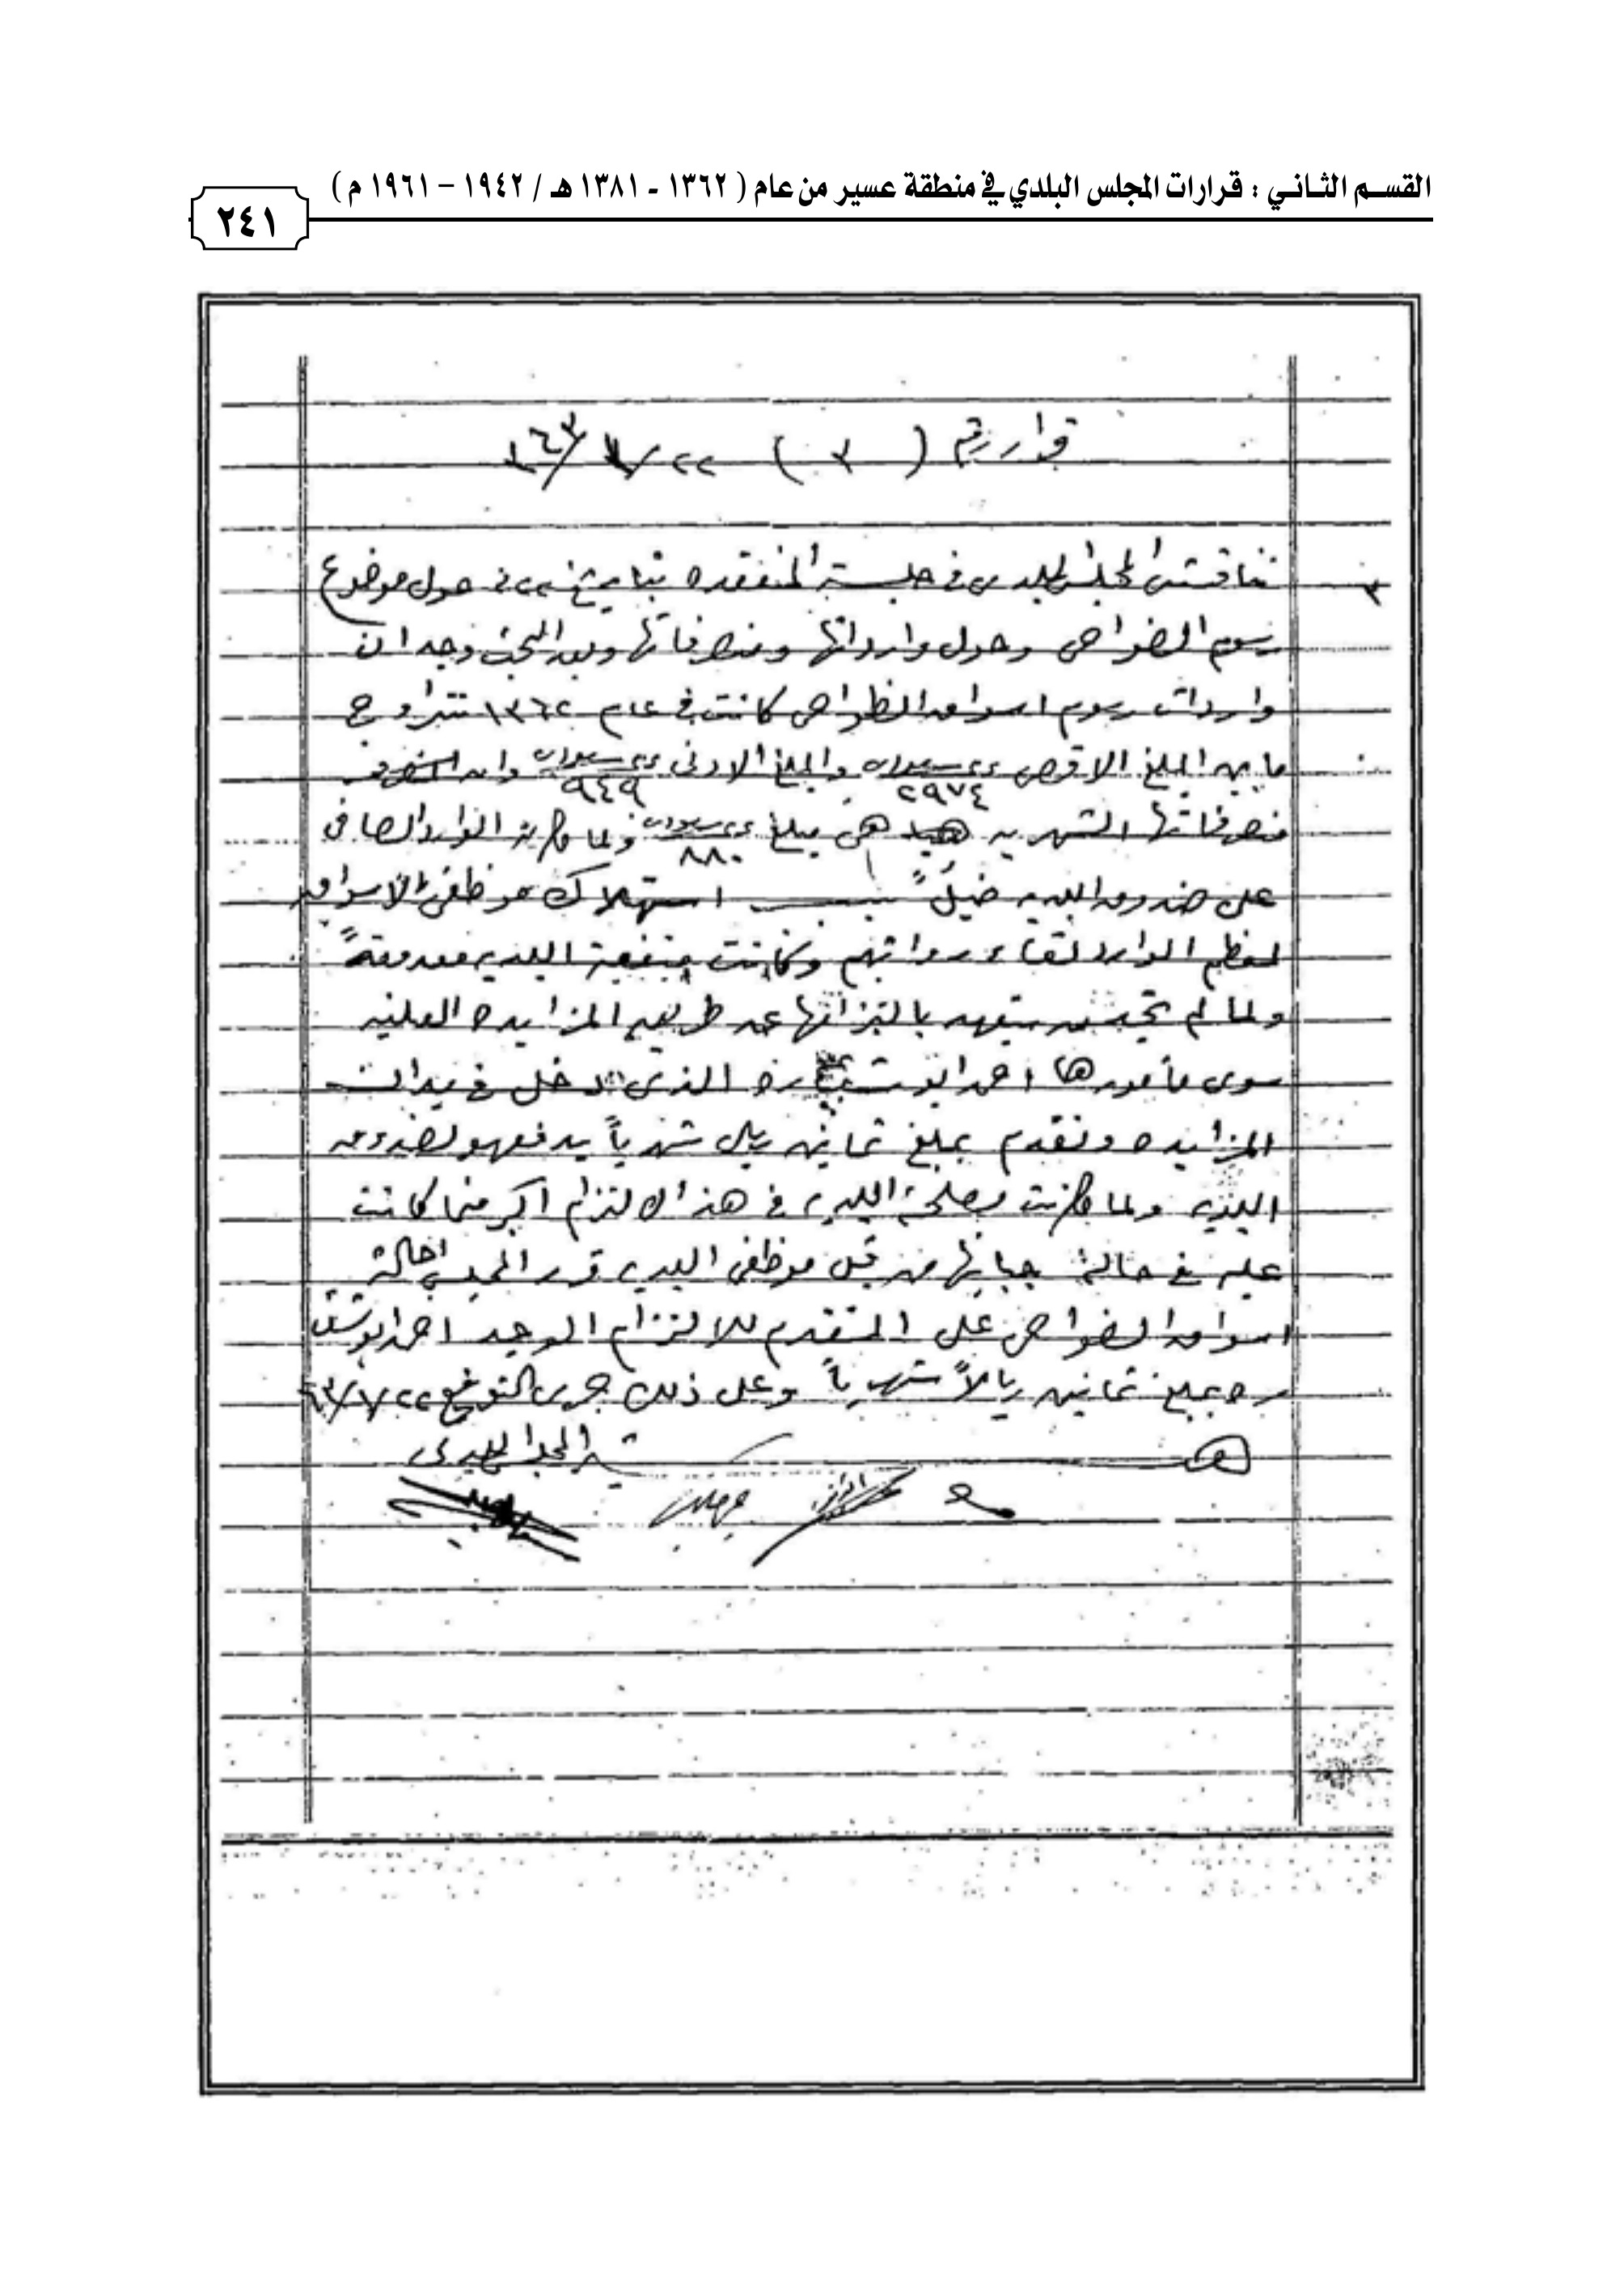 القسم الثاني : قرارات المجلس البلدي في منطقة عسير من عام ( ١٣٦٢ - ١٣٨١ هـ / ١٩٤٢ – ١٩٦١ م )
٢٤١
قرار رقم ( ٣ ) ٢٢/٧/٦٣
٣
تناقش المجلس البلدي في جلسته المنعقده بتاريخ ٢٢ في حول موضوع
رسوم الضواحي وحول وارداتها ومنصرفاتها وبعد البحث وجد ان
واردات رسوم اسواق الظواحي كانت في عام ١٣٦٢ تتراوح
ما بين المبلغ الاقصى ٢٩٧٤ والمبلغ الادنى ٩٤٩ وان
منصرفاتها الشهريه هي مبلغ ٨٨٠ ولما كان الوارد الصافي
على صندوق البلديه ضئيلً بسبب استهلاك موظفي الاسواق
لمعظم الوارد لقاء رواتبهم وكانت منفعة البلديه معدومةً
ولما لم تجد من يتعهد بالتزامها عن طريق المزايده العلنيه
سوى مأمورها احمد ابو الذي دخل في ميدان
المزايده وتقدم بمبلغ ثمانين ريال شهرياً يدفعهو لصندوق
البلديه ولما كانت مصلحة البلديه في هذا الالتزام اكبر مما كانت
عليه في حالة جبايتها من قبل موظفي البلديه قرر المجلس احالة
اسواق الضواحي على المتقدم للالتزام الوحيد احمد ابو
بمبلغ ثمانين ريالاً شهرياً وعلى ذلك جرى التوقيع ٢٢/٧/٦٣
المجلس البلدي